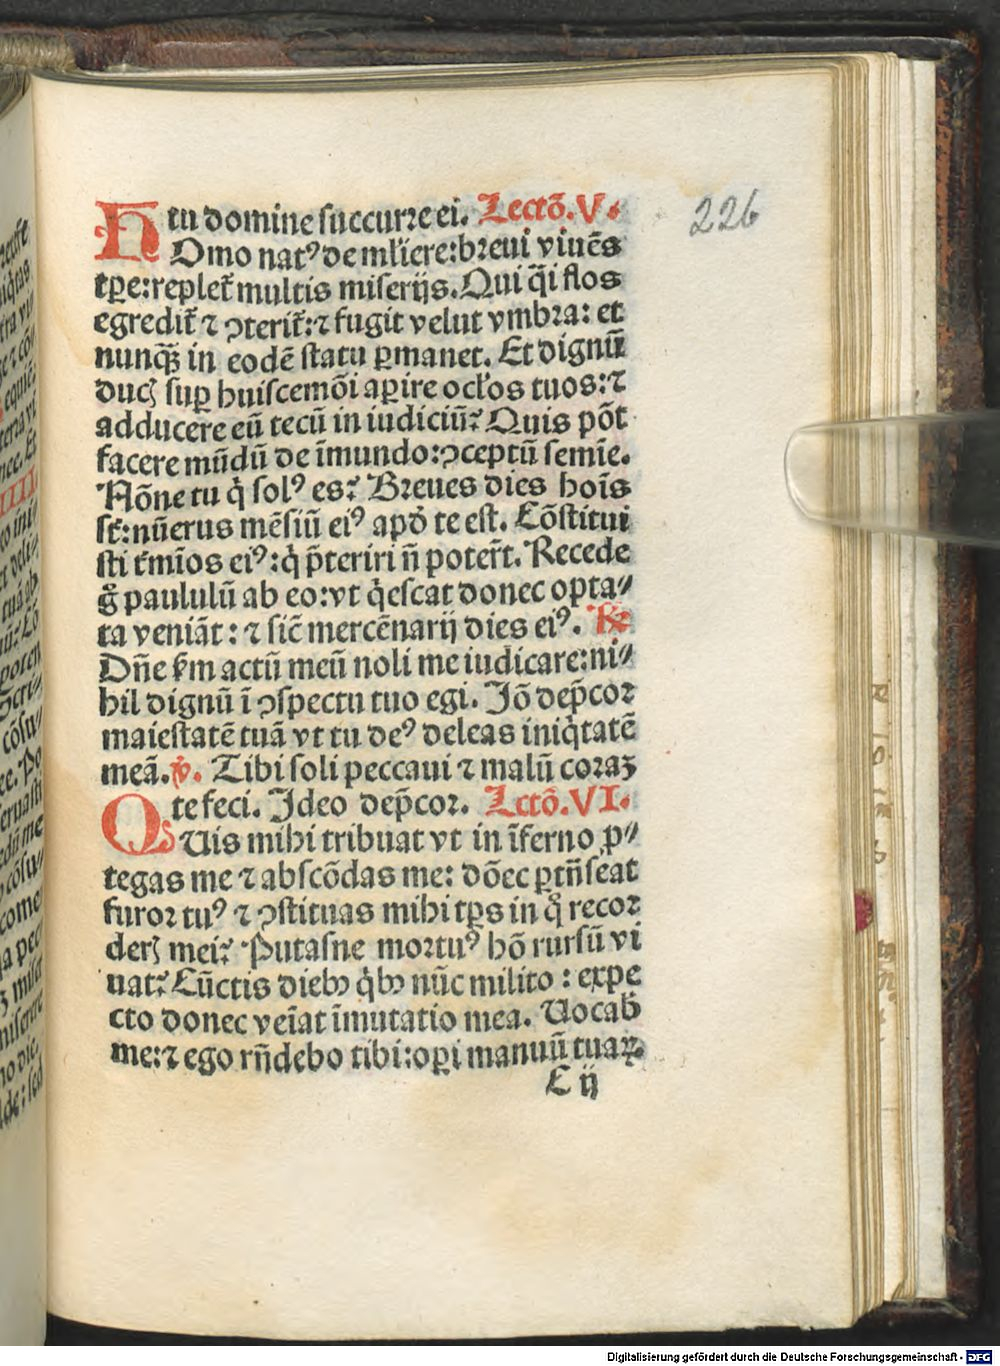 tu domine succurre ei. Lectō.V.
HOmo natꝰ de mľiere:breui viuēs
tꝑe:repleť multis miserijs.Qui q̄i flos
egrediť ⁊ ꝯteriť:⁊ fugit velut vmbra: et
nunq̄ꝫ in eodē statu ꝑmanet. Et dignū
ducꝭ suꝑ huiscemōi aꝑire ocľos tuos:⁊
adducere eū tecū in iudiciū? Quis pōt
facere mūdū de īmundo:ꝯceptū semīe.
Nōne tu q̇ solꝰ es? Breues dies hoīs
st̄:nūerus mēsiū eiꝰ apd̓ te est. Cōstitui
sti ťmīos eiꝰ:q̇ p̄teriri n̄ poteř̄t. Recede
g̊ paululū ab eo:vt q̇escat donec opta⸗
ta veniāt: ⁊ sic̄ mercēnarij dies eiꝰ. ℟
Dn̄e ẜm actū meū noli me iudicare:ni⸗
hil dignū ī ꝯspectu tuo egi. Jō dep̄cor
maiestatē tuā vt tu deꝰ deleas iniq̇tatē
meā. ℣. Tibi soli peccaui ⁊ malū coraꝫ
te feci. Jdeo dep̄cor. Lctō.VI.
QUis mihi tribuat vt in īferno ꝓ⸗
tegas me ⁊ abscōdas me: dōec ꝑtn̄seat
furor tuꝰ ⁊ ꝯstituas mihi tꝑs in q̊ recor
derꝭ mei? Putasne mortuꝰ hō rursū vi
uat? Cūctis diebꝰ q̇bꝰ nūc milito : expe
cto donec veīat īmutatio mea. Uocab̓
me:⁊ ego rn̄debo tibi:oꝑi manuū tuaꝝ.
C ij
226
Digitalisierung gefördert durch die Deutsche Forschungsgemeinschaft - DFG